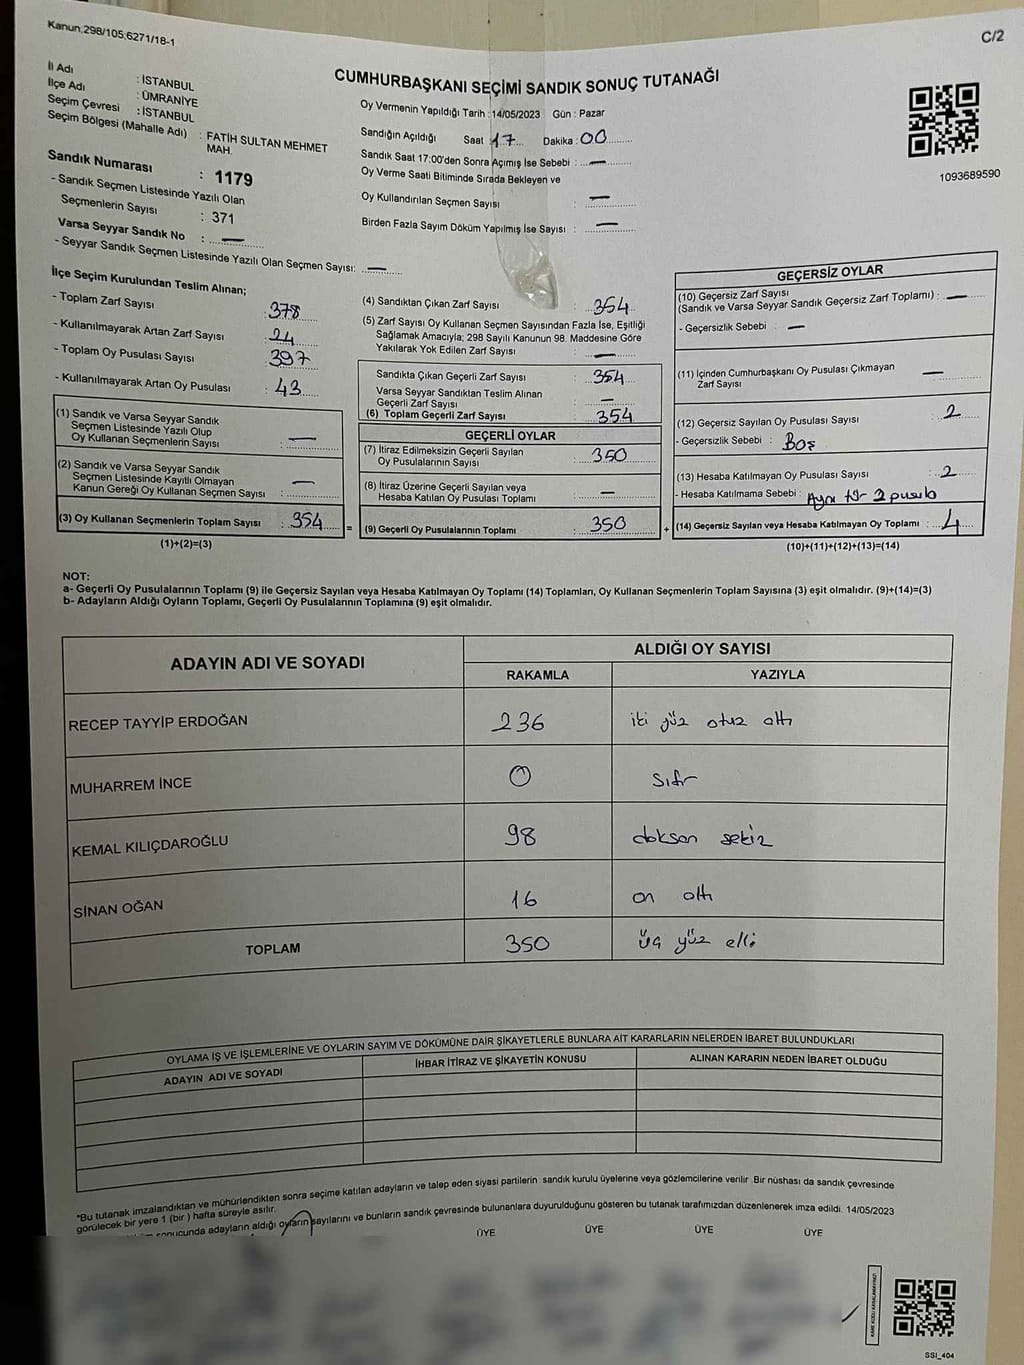 Kanun;298/105,6271/18-1
C/2
CUMHURBAŞKANI SEÇİMİ SANDIK SONUÇ TUTANAĞI
İl Adı : İSTANBUL
İlçe Adı : ÜMRANİYE
Seçim Çevresi : İSTANBUL
Seçim Bölgesi (Mahalle Adı) : FATİH SULTAN MEHMET MAH.
Sandık Numarası : 1179
- Sandık Seçmen Listesinde Yazılı Olan
Seçmenlerin Sayısı : 371
Varsa Seyyar Sandık No : —
- Seyyar Sandık Seçmen Listesinde Yazılı Olan Seçmen Sayısı: —
Oy Vermenin Yapıldığı Tarih : 14/05/2023 Gün : Pazar
Sandığın Açıldığı Saat : 17 Dakika : 00
Sandık Saat 17:00'den Sonra Açımış İse Sebebi : —
Oy Verme Saati Bitiminde Sırada Bekleyen ve
Oy Kullandırılan Seçmen Sayısı : —
Birden Fazla Sayım Döküm Yapılmış İse Sayısı : —
1093689590
İlçe Seçim Kurulundan Teslim Alınan;
- Toplam Zarf Sayısı : 378
- Kullanılmayarak Artan Zarf Sayısı : 24
- Toplam Oy Pusulası Sayısı : 397
- Kullanılmayarak Artan Oy Pusulası : 43
(1) Sandık ve Varsa Seyyar Sandık
Seçmen Listesinde Yazılı Olup
Oy Kullanan Seçmenlerin Sayısı : —
(2) Sandık ve Varsa Seyyar Sandık
Seçmen Listesinde Kayıtlı Olmayan
Kanun Gereği Oy Kullanan Seçmen Sayısı : —
(3) Oy Kullanan Seçmenlerin Toplam Sayısı : 354 =
(1)+(2)=(3)
(4) Sandıktan Çıkan Zarf Sayısı : 354
(5) Zarf Sayısı Oy Kullanan Seçmen Sayısından Fazla İse, Eşitliği
Sağlamak Amacıyla; 298 Sayılı Kanunun 98. Maddesine Göre
Yakılarak Yok Edilen Zarf Sayısı : —
Sandıkta Çıkan Geçerli Zarf Sayısı : 354
Varsa Seyyar Sandıktan Teslim Alınan
Geçerli Zarf Sayısı : —
(6) Toplam Geçerli Zarf Sayısı : 354
GEÇERLİ OYLAR
(7) İtiraz Edilmeksizin Geçerli Sayılan
Oy Pusulalarının Sayısı : 350
(8) İtiraz Üzerine Geçerli Sayılan veya
Hesaba Katılan Oy Pusulası Toplamı : —
(9) Geçerli Oy Pusulalarının Toplamı : 350 +
GEÇERSİZ OYLAR
(10) Geçersiz Zarf Sayısı
(Sandık ve Varsa Seyyar Sandık Geçersiz Zarf Toplamı) : —
- Geçersizlik Sebebi : —
(11) İçinden Cumhurbaşkanı Oy Pusulası Çıkmayan
Zarf Sayısı —
(12) Geçersiz Sayılan Oy Pusulası Sayısı : 2
- Geçersizlik Sebebi : Boş
(13) Hesaba Katılmayan Oy Pusulası Sayısı : 2
- Hesaba Katılmama Sebebi : Aynı tür 2 pusula
(14) Geçersiz Sayılan veya Hesaba Katılmayan Oy Toplamı : 4
(10)+(11)+(12)+(13)=(14)
NOT:
a- Geçerli Oy Pusulalarının Toplamı (9) ile Geçersiz Sayılan veya Hesaba Katılmayan Oy Toplamı (14) Toplamları, Oy Kullanan Seçmenlerin Toplam Sayısına (3) eşit olmalıdır. (9)+(14)=(3)
b- Adayların Aldığı Oyların Toplamı, Geçerli Oy Pusulalarının Toplamına (9) eşit olmalıdır.
ADAYIN ADI VE SOYADI
ALDIĞI OY SAYISI
RAKAMLA YAZIYLA
RECEP TAYYİP ERDOĞAN 236 iki yüz otuz altı
MUHARREM İNCE 0 sıfır
KEMAL KILIÇDAROĞLU 98 doksan sekiz
SİNAN OĞAN 16 on altı
TOPLAM 350 üç yüz elli
OYLAMA İŞ VE İŞLEMLERİNE VE OYLARIN SAYIM VE DÖKÜMÜNE DAİR ŞİKAYETLERLE BUNLARA AİT KARARLARIN NELERDEN İBARET BULUNDUKLARI
ADAYIN ADI VE SOYADI İHBAR İTİRAZ VE ŞİKAYETİN KONUSU ALINAN KARARIN NEDEN İBARET OLDUĞU
*Bu tutanak imzalandıktan ve mühürlendikten sonra seçime katılan adayların ve talep eden siyasi partilerin sandık kurulu üyelerine veya gözlemcilerine verilir .Bir nüshası da sandık çevresinde
görülecek bir yere 1 (bir ) hafta süreyle asılır.
sonucunda adayların aldığı oyların sayılarını ve bunların sandık çevresinde bulunanlara duyurulduğunu gösteren bu tutanak tarafımızdan düzenlenerek imza edildi. 14/05/2023
ÜYE ÜYE ÜYE ÜYE
SSI_404